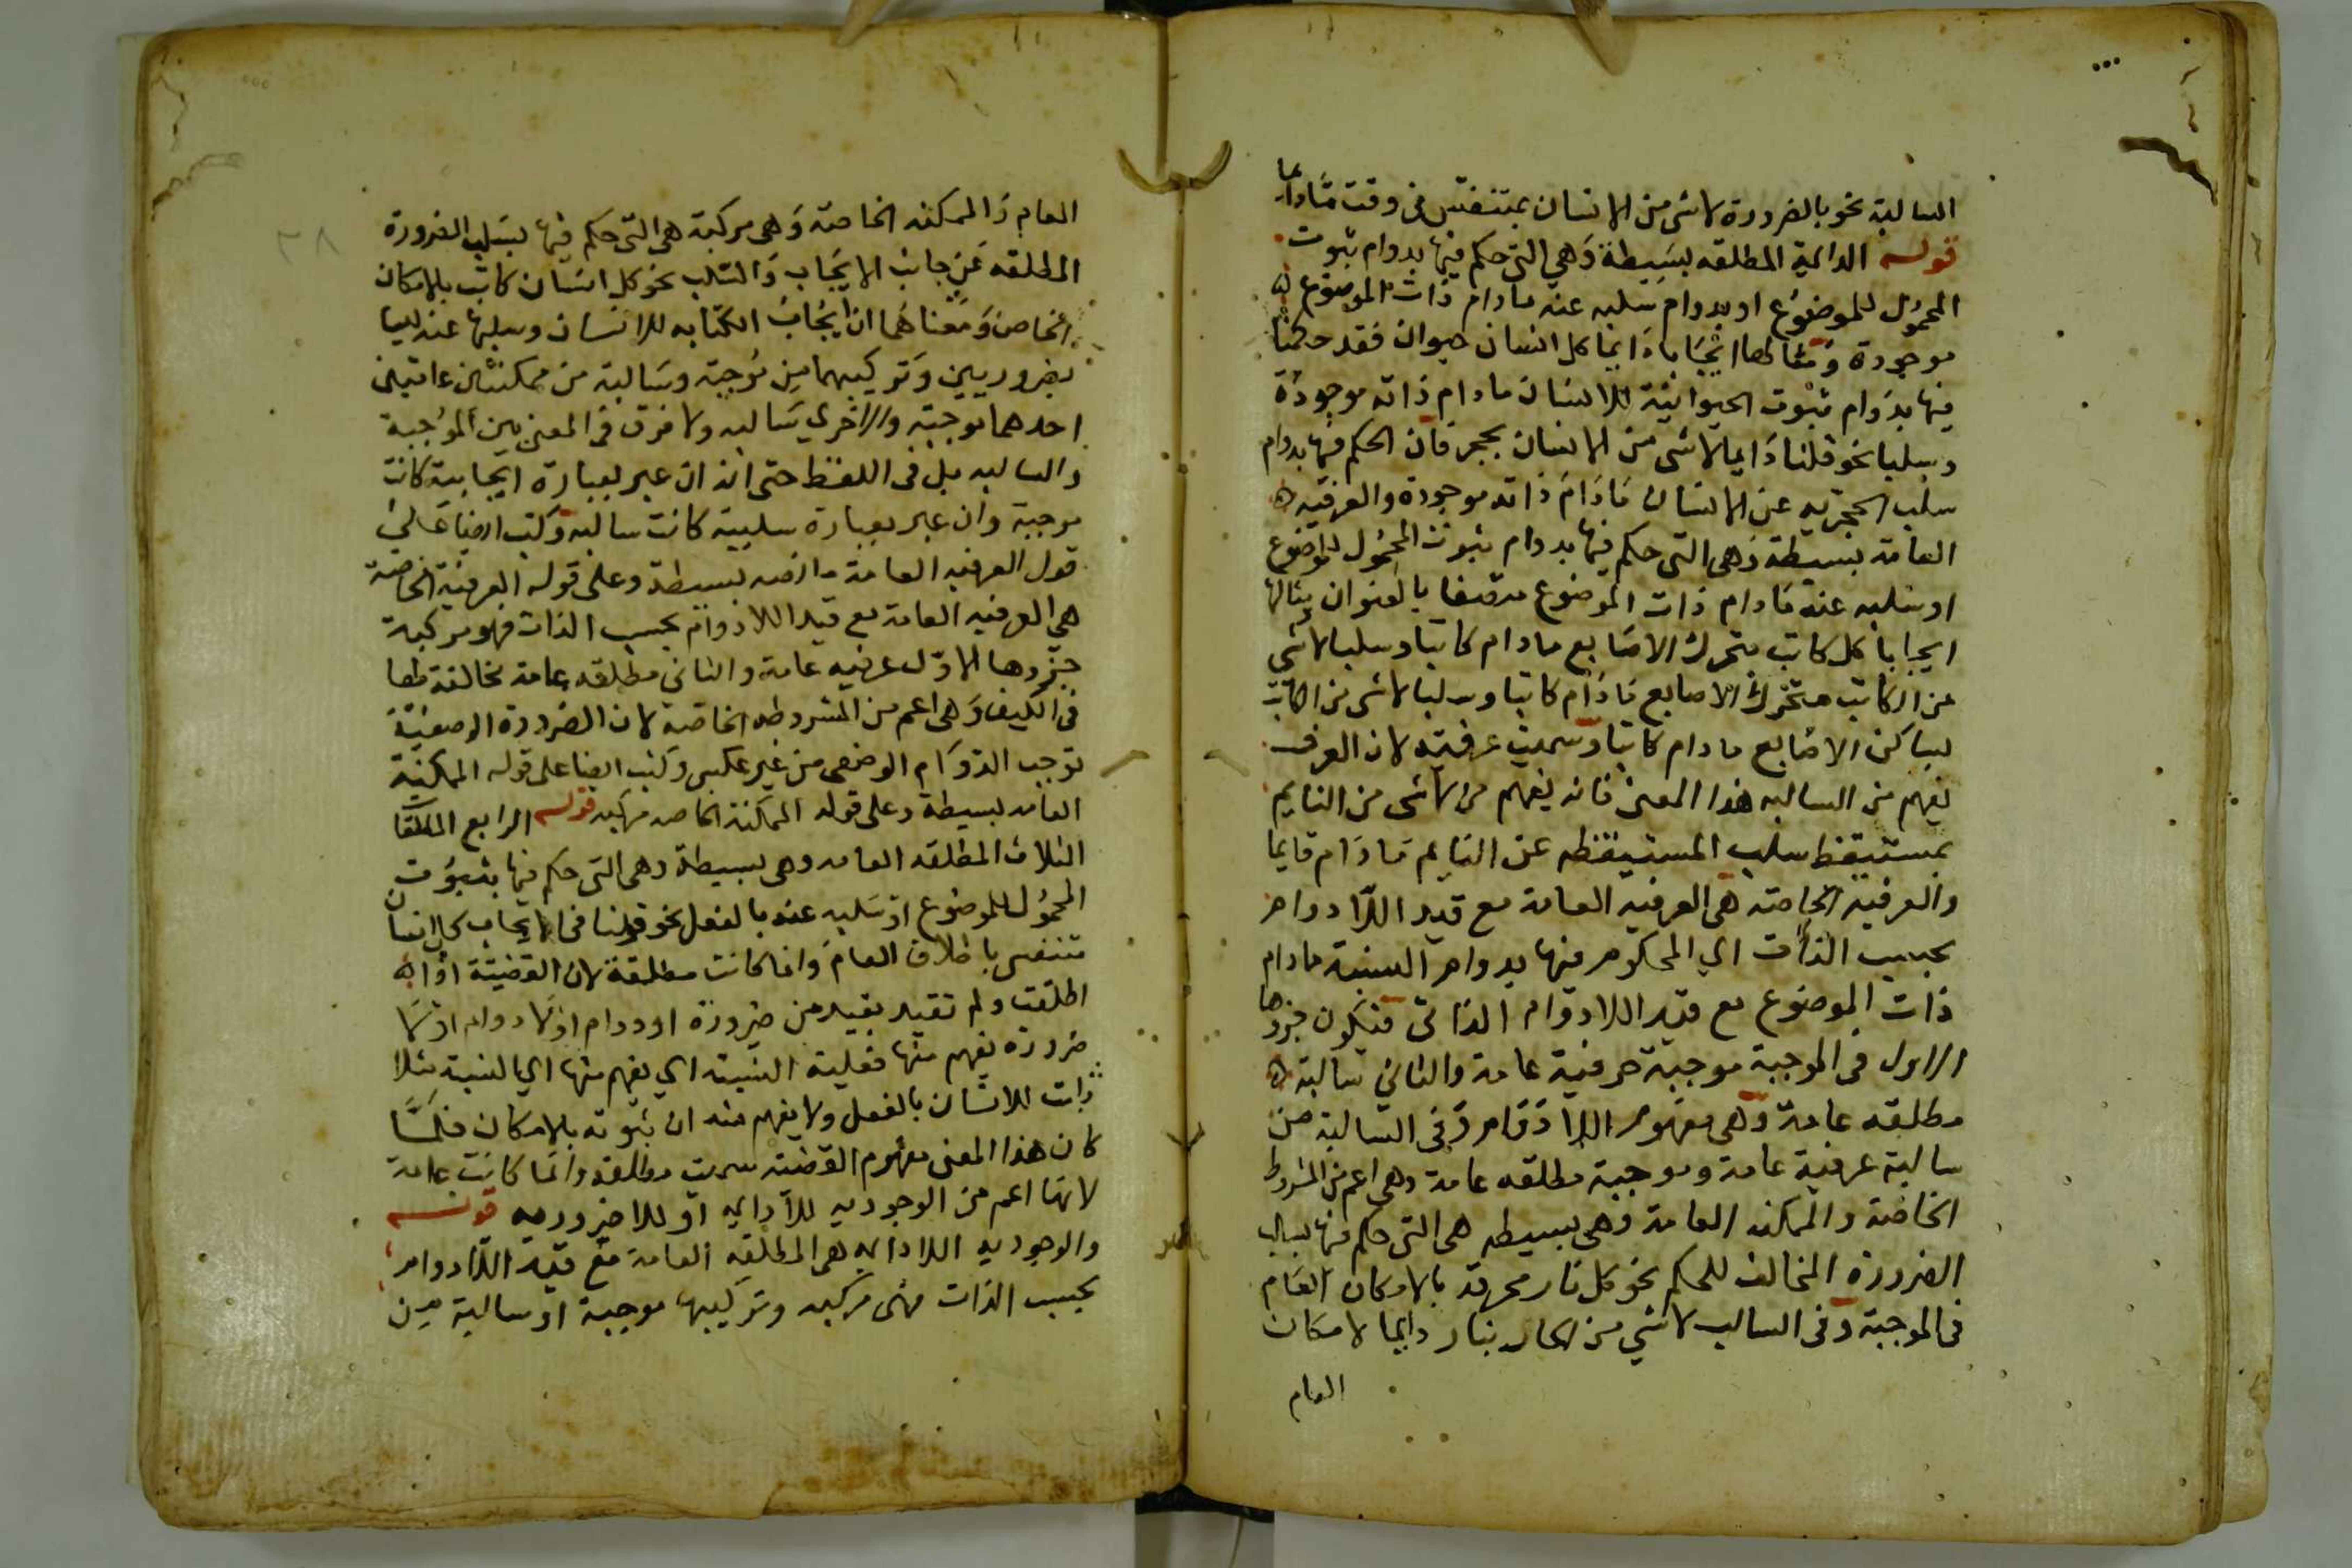 السالبة نحو بالضرورة لاشى من الانسان بمتنفس فى وقت ما دايما
قوله الدايمة المطلقه بسيطة وهي التى حكم فيها بدوام ثبوت
المحمول للموضوع او بدوام سلبه عنه مادام ذات الموضوع
موجودة ومثالها ايجابا دايما كل انسان حيوان فقد حكمنا
فيها بدوام ثبوت الحيوانية للانسان مادام ذاته موجودة
وسلبا نحو قلنا دايما لاشى من الانسان بحجر فان الحكم فيها بدوام
سلب الحجريه عن الانسان مادام ذاته موجودة والعرفيه
العامة بسيطة وهى التى حكم فيها بدوام ثبوت المحمول للموضوع
او سلبه عنه مادام ذات الموضوع متصفا بالعنوان مثالها
ايجابا كل كاتب متحرك الاصابع مادام كاتبا وسلبا لاشى
من الكاتب متحرك الاصابع مادام كاتبا وسلبا لاشى من الكاتب
بساكن الاصابع مادام كاتبا وسميت عرفيه لان العرف
يفهم من السالبه هذا المعنى فانه يفهم من لاشى من النايم
بمستيقظ سلب المستيقظه عن النايم مادام نايما
والعرفيه الخاصة هى العرفيه العامة مع قيد اللادوام
بحسب الذات اي المحكوم فيها بدوام النسبة مادام
ذات الموضوع مع قيد اللادوام الذاتى فتكون جزوها
الاول فى الموجبة موجبة عرفية عامة والثاني سالبة
مطلقه عامة وهى مفهوم اللادوام وفى السالبة من
سالبة عرفية عامة وموجبة مطلقه عامة وهى اعم من المشروط
الخاصة والممكنه العامة وهى بسيطه هى التى حكم فيها بسلب
الضرورة المخالف للحكم نحو كل نار محرقة بالامكان العام
فى الموجبة وفى السالب لاشي من الحار بنار دايما لامكان
العام
العام والممكنه الخاصة وهى مركبة هى التى حكم فيها بسلب الضرورة
المطلقه عن جانب الايجاب والسلب نحو كل انسان كاتب بالامكان
الخاص ومعناهما ان ايجاب الكتابه للانسان وسلبها عنه ليسا
بضروريين وتركيبهما من موجبة وسالبة من ممكنتين عامتين
احدهما موجبة والاخري سالبه ولا فرق فى المعنى بين الموجبة
والسالبه بل فى اللفظ حتى انه ان عبر بعبارة ايجابية كانت
موجبة وان عبر بعبارة سلبية كانت سالبه وكتب ايضا على
قول العرفيه العامة بسيطة وعلى قوله العرفية الخاصة
هى العرفيه العامة مع قيد اللادوام بحسب الذات فهو مركبة
جزوها الاول عرفيه عامة والثاني مطلقه عامة مخالفة لها
فى الكيف وهى اعم من المشروطه الخاصة لان الضرورة الوصفية
توجب الدوام الوصفى من غير عكس وكتب ايضا على قوله الممكنة
العامه بسيطة وعلى قوله الممكنة الخاصه مركبه قوله الرابع المطلقا
الثلاث المطلقه العامه وهى بسيطة وهى التى حكم فيها بثبوت
المحمول للموضوع او سلبه عنه بالفعل نحو قولنا فى الايجاب كل انسان
متنفس باطلاق العام وانما كانت مطلقة لان القضية اذا
اطلقت ولم تقيد بقيد من ضرورة او دوام او لا دوام او لا
ضرورة يفهم منها فعلية النسبة اي يفهم منها اي النسبة مثلا
ذات للانسان بالفعل ولا يفهم منه ان ثبوته بالامكان فلما
كان هذا المعنى مفهوم القضية سميت مطلقه وانما كانت عامة
لانها اعم من الوجوديه للادايمه او للاضروريه قوله
والوجوديه اللادايمه هى المطلقه العامة مع قيد اللادوام
بحسب الذات فهى مركبه وتركيبها موجبة او سالبة من